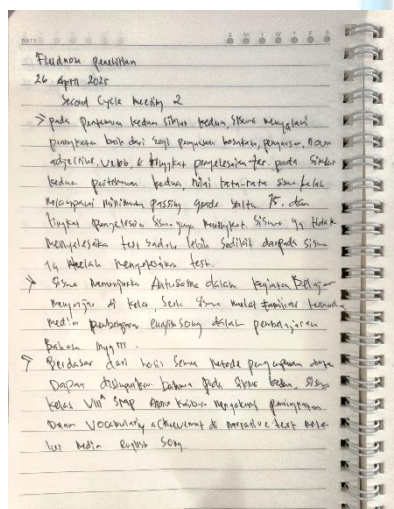 DATE
S M T W T F S
penelitian
26 April 2025
Second Cycle meeting 2
> pada pertemuan kedua siklus kedua, siswa mengalami
peningkatan baik dari segi penguasaan kosakata, pengucapan, noun
adjective, verb, & tingkat penyelesaian tes. pada siklus
kedua pertemuan kedua, nilai rata-rata siswa telah
melampaui minimum passing grade yaitu 75. dan
tingkat penyelesaian siswa juga meningkat. siswa yg tidak
menyelesaikan test sudah lebih sedikit daripada siswa
yg telah menyelesaikan test.
> siswa menunjukan Antusiasme dalam kegiatan Belajar
mengajar di kelas, serta siswa mulai familiar terhadap
media pembelajaran english song dalam pembelajaran
Bahasa Inggris.
> Berdasar dari hasil semua metode pengumpulan data
Dapat disimpulkan bahwa pada siklus kedua, siswa
kelas VIII A SMP mengalami peningkatan
Dalam vocabulary achievement di narrative text mela-
lui media english song